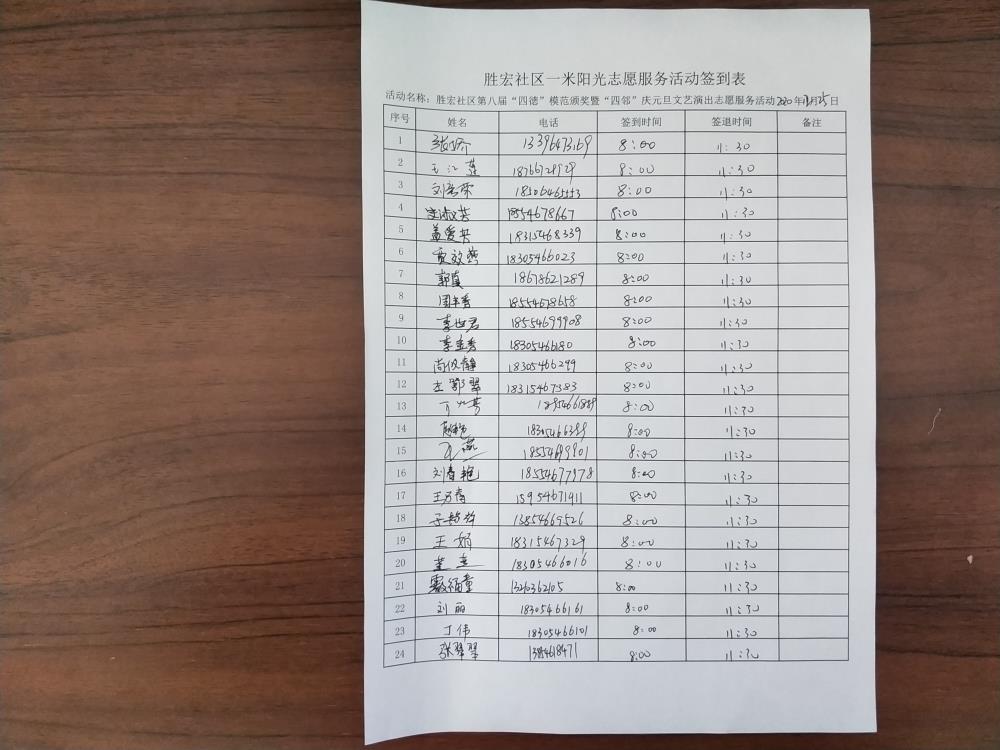 胜宏社区一米阳光志愿服务活动签到表
活动名称：胜宏社区第八届“四德”模范颁奖暨“四邻”庆元旦文艺演出志愿服务活动2020年12月25日
序号 姓名 电话 签到时间 签退时间 备注
1 13396473169 8:00 11:30
2 王江莲 18766728929 8:00 11:30
3 18506465553 8:00 11:30
4 18554678667 8:00 11:30
5 盖爱芳 18315468339 8:00 11:30
6 贾效燕 18305466023 8:00 11:30
7 郭真 18678621289 8:00 11:30
8 周丰秀 18554678658 8:00 11:30
9 李世君 18554699908 8:00 11:30
10 李金秀 18305466180 8:00 11:30
11 尚俊静 18305466299 8:00 11:30
12 18315467383 8:00 11:30
13 8:00 11:30
14 18305466399 8:00 11:30
15 18554699901 8:00 11:30
16 刘春艳 18554677978 8:00 11:30
17 王万春 15954671911 8:00 11:30
18 13854669526 8:00 11:30
19 王娟 18315467329 8:00 11:30
20 18305466016 8:00 11:30
21 8:00 11:30
22 刘丽 18305466161 8:00 11:30
23 丁伟 18305466101 8:00 11:30
24 张翠翠 8:00 11:30